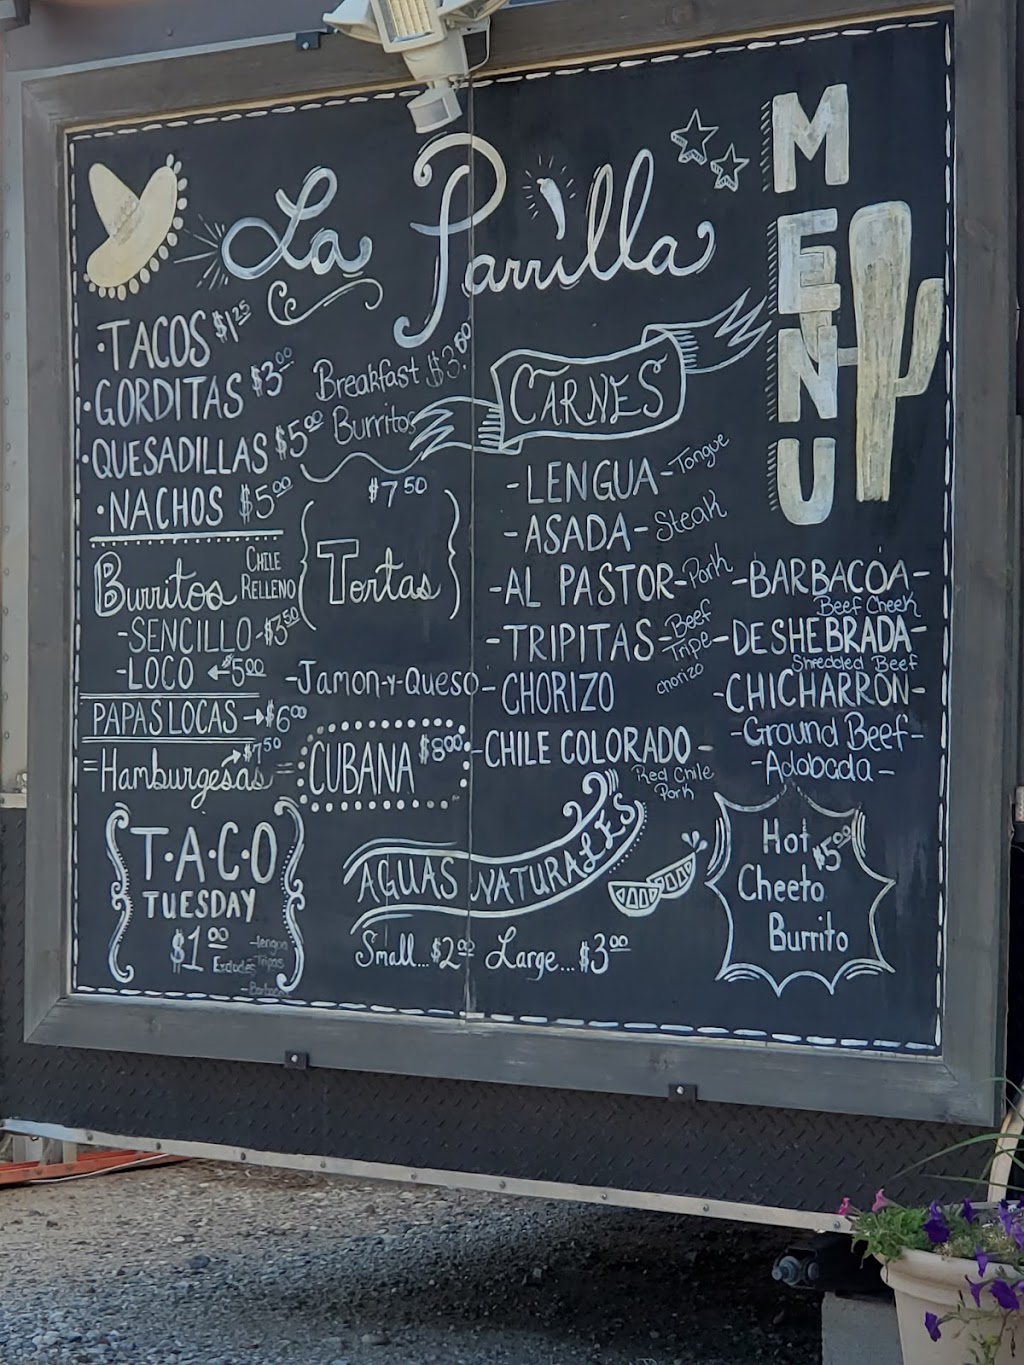 La Parrilla
MENU
·TACOS $1.25
·GORDITAS $3.00
·QUESADILLAS $5.00
·NACHOS $5.00
Breakfast $3.00
Burritos
Burritos
CHILE
RELLENO
-SENCILLO-$3.50
-LOCO ←$5.00
PAPAS LOCAS→$6.00
=Hamburgesas=
→$7.50
$7.50
Tortas
-Jamon-y-Queso-
CUBANA $8.00
CARNES
-LENGUA-Tongue
-ASADA-Steak
-AL PASTOR-Pork
-TRIPITAS-Beef
Tripe
-CHORIZO
chorizo
-CHILE COLORADO-
Red Chile
Pork
-BARBACOA-
Beef Cheek
-DESHEBRADA-
Shredded Beef
-CHICHARRÓN-
-Ground Beef-
-Adobada-
T·A·C·O
TUESDAY
$1.00
Excludes
-lengua
-Tripas
AGUAS NATURALES
Small...$2.00 Large...$3.00
Hot
Cheeto
Burrito
$5.00